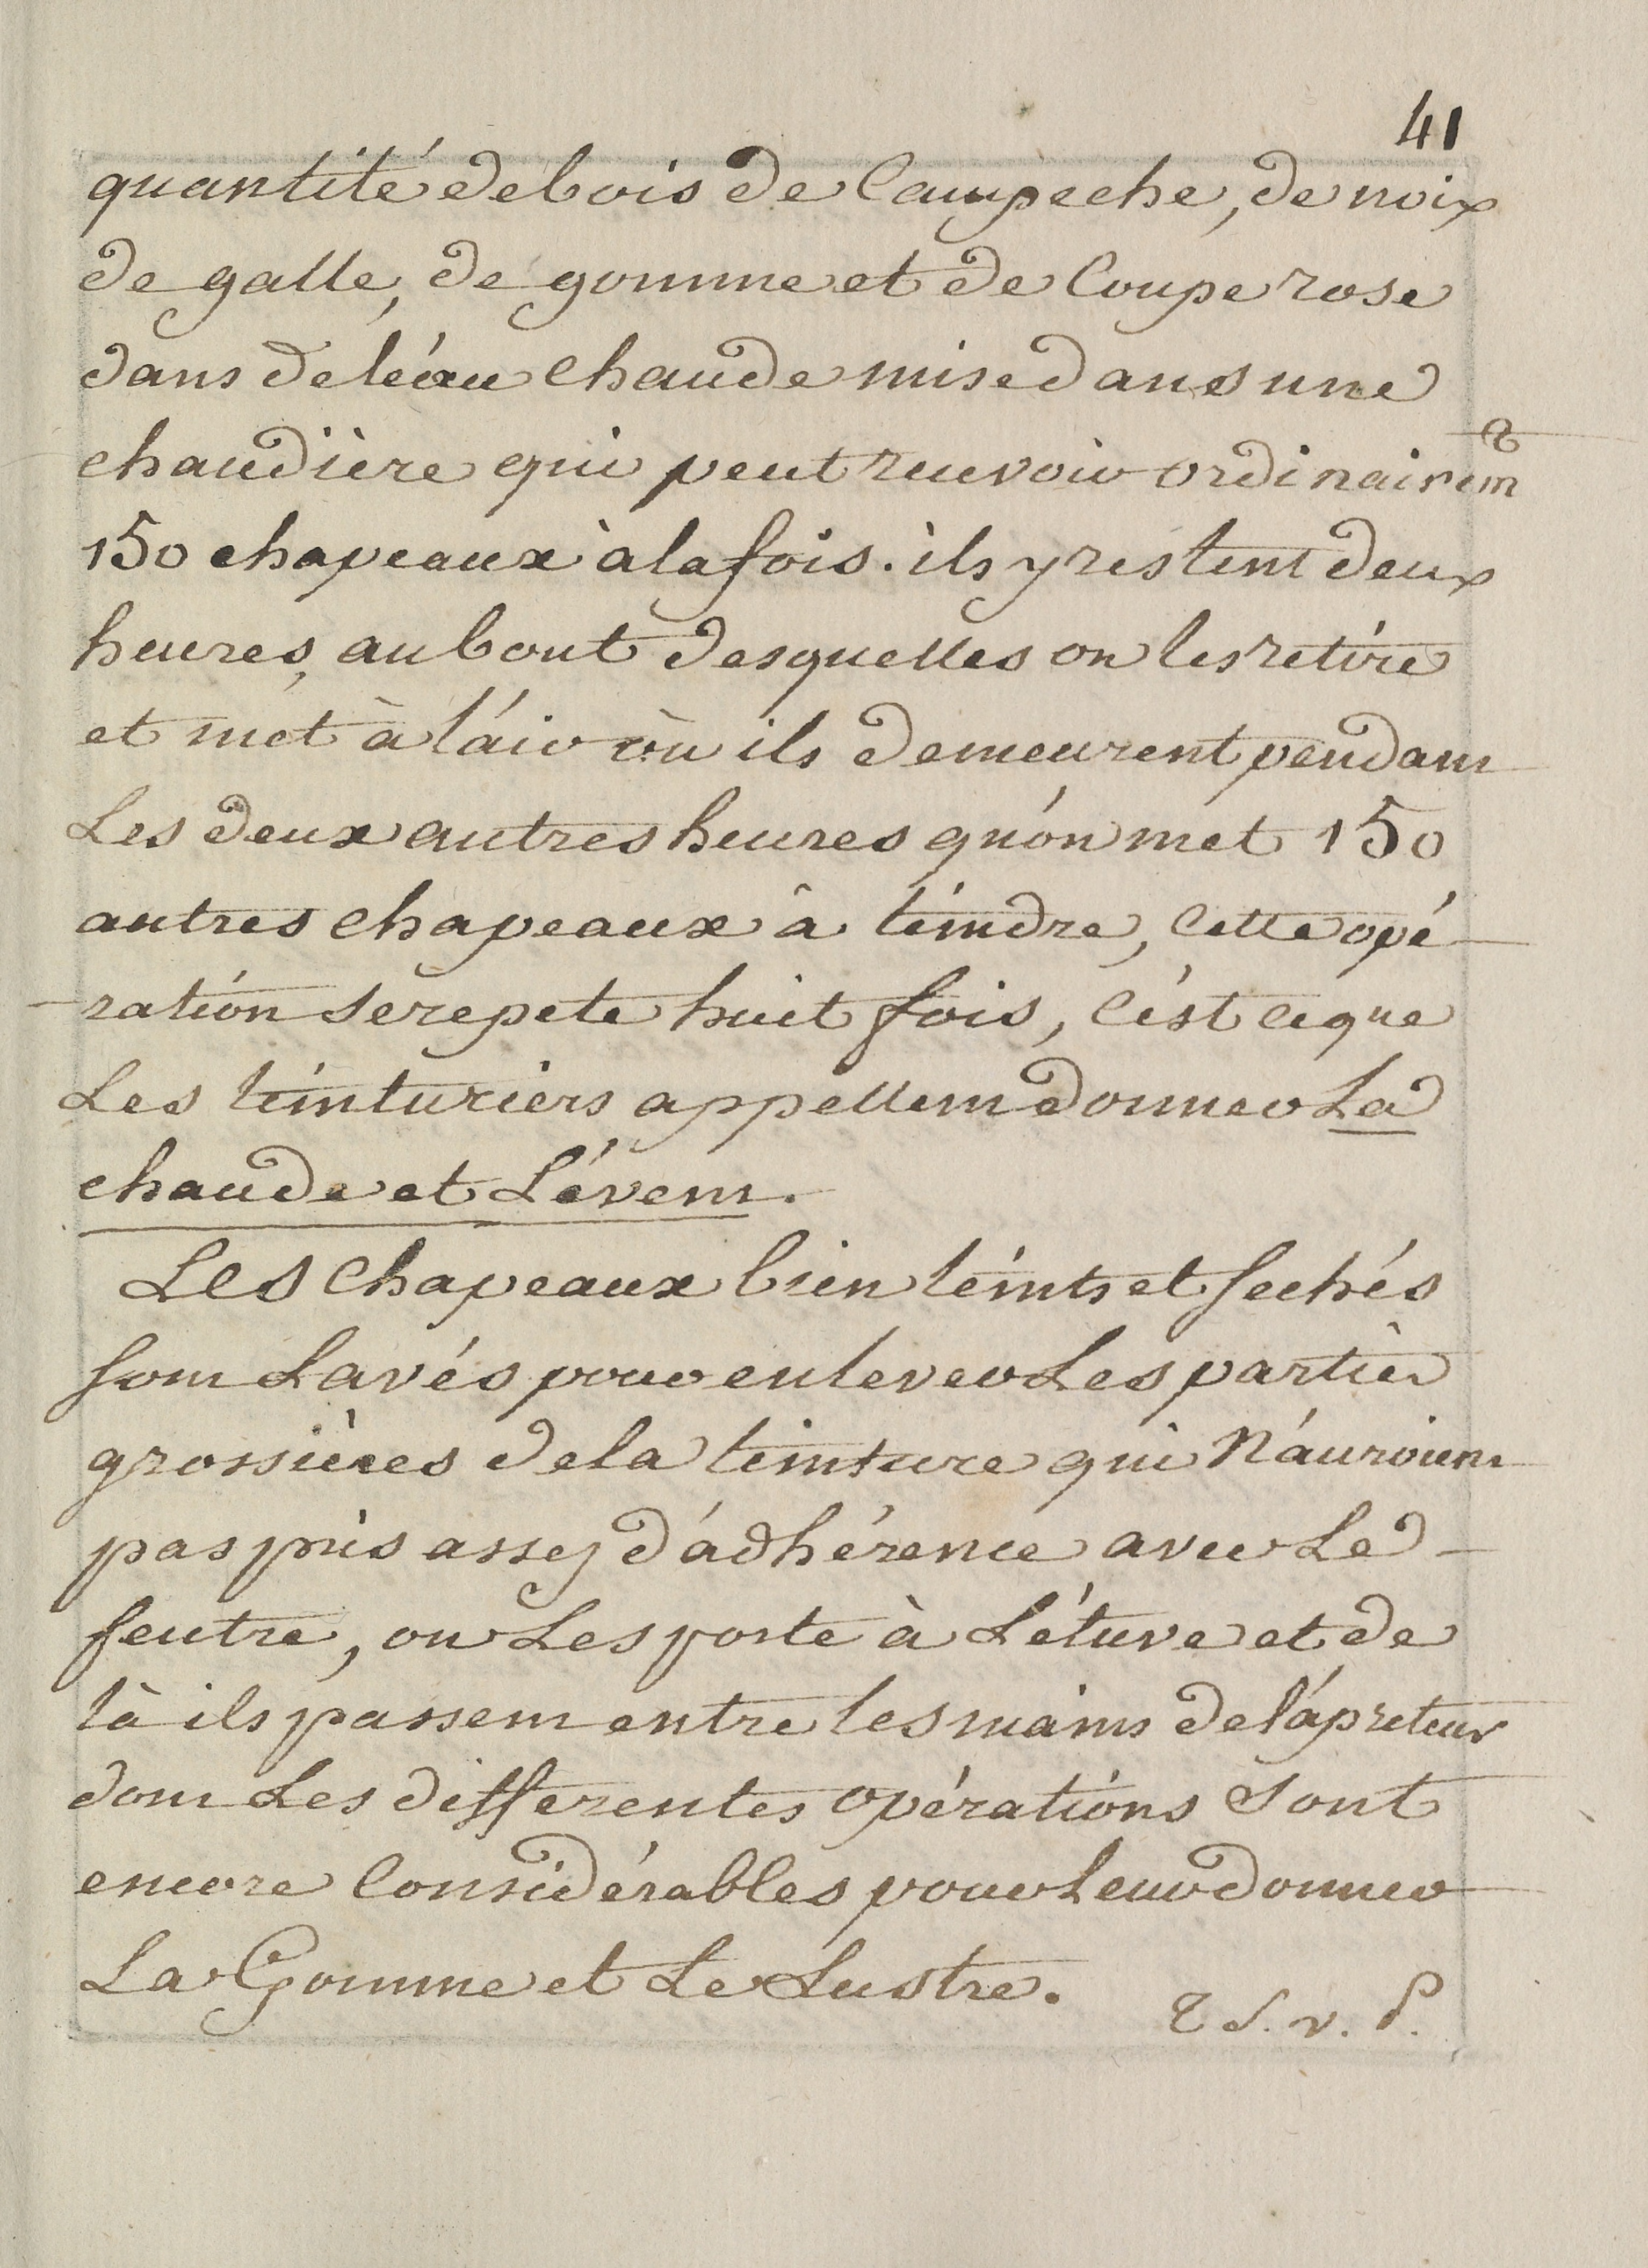 41
quantité de bois de Campeche, de noix
de galle, de gomme et de Couperose
dans de léau chaude mise dans une
chaudière qui peut recevoir ordinairemt
150 chapeaux à la fois. ils y restent deux
heures, au bout desquelles on les retire
et met à l'air où ils demeurent pendant
Les deux autres heures qu'on met 150
autres chapeaux à teindre, Cette opé-
-ration se repete huit fois, C'est ce que
Les teinturiers appellent donner La
chaude et L'évent.
Les Chapeaux bien teints et sechés
sont Lavés pour enlever Les parties
grossières de la teinture qui N'auroient
pas pris assez d'adhérence avec Le -
feutre, on Les porte à L'étuve et de
là ils passent entre les mains de l'apreteur
dont Les differentes opérations sont
encore Considérables pour Leur donner
La Gomme et Le Lustre.
T S. v. P.